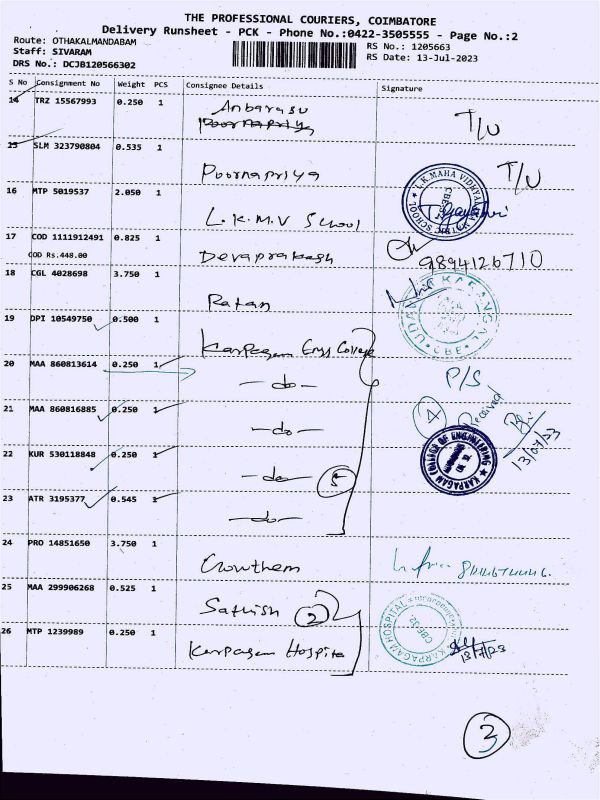 THE PROFESSIONAL COURIERS, COIMBATORE
Delivery Runsheet - PCK - Phone No.:0422-3505555 - Page No.:2
Route: OTHAKALMANDABAM
Staff: SIVARAM
DRS No.: DCJB120566302
RS No.: 1205663
RS Date: 13-Jul-2023
S No Consignment No Weight PCS Consignee Details Signature
14 TRZ 15567993 0.250 1 Anbarasu
Poornapriya
T/U
15 SLM 323790804 0.535 1
Poornapriya T/U
16 MTP 5019537 2.050 1
L.K.M.V School
L.K. MAHA VIDHYALAYA SCHOOL
17 COD 1111912491 0.825 1
COD Rs.448.00 Devaprakash 9894126710
18 CGL 4028698 3.750 1
Ratan
19 DPI 10549750 0.500 1
Karpagam Engg College
CBE
20 MAA 860813614 0.250 1 P/S
-do-
21 MAA 860816885 0.250 1 4 Received
-do- 13/07/23
22 KUR 530118848 0.250 1
KARPAGAM COLLEGE OF ENGINEERING
-do- 5
23 ATR 3195377 0.545 1
-do-
24 PRO 14851650 3.750 1
Gowtham
25 MAA 299906268 0.525 1
Sathish 2
26 MTP 1239989 0.250 1
Karpagam Hospital
KARPAGAM HOSPITAL
CBE-32
13/7/23
3